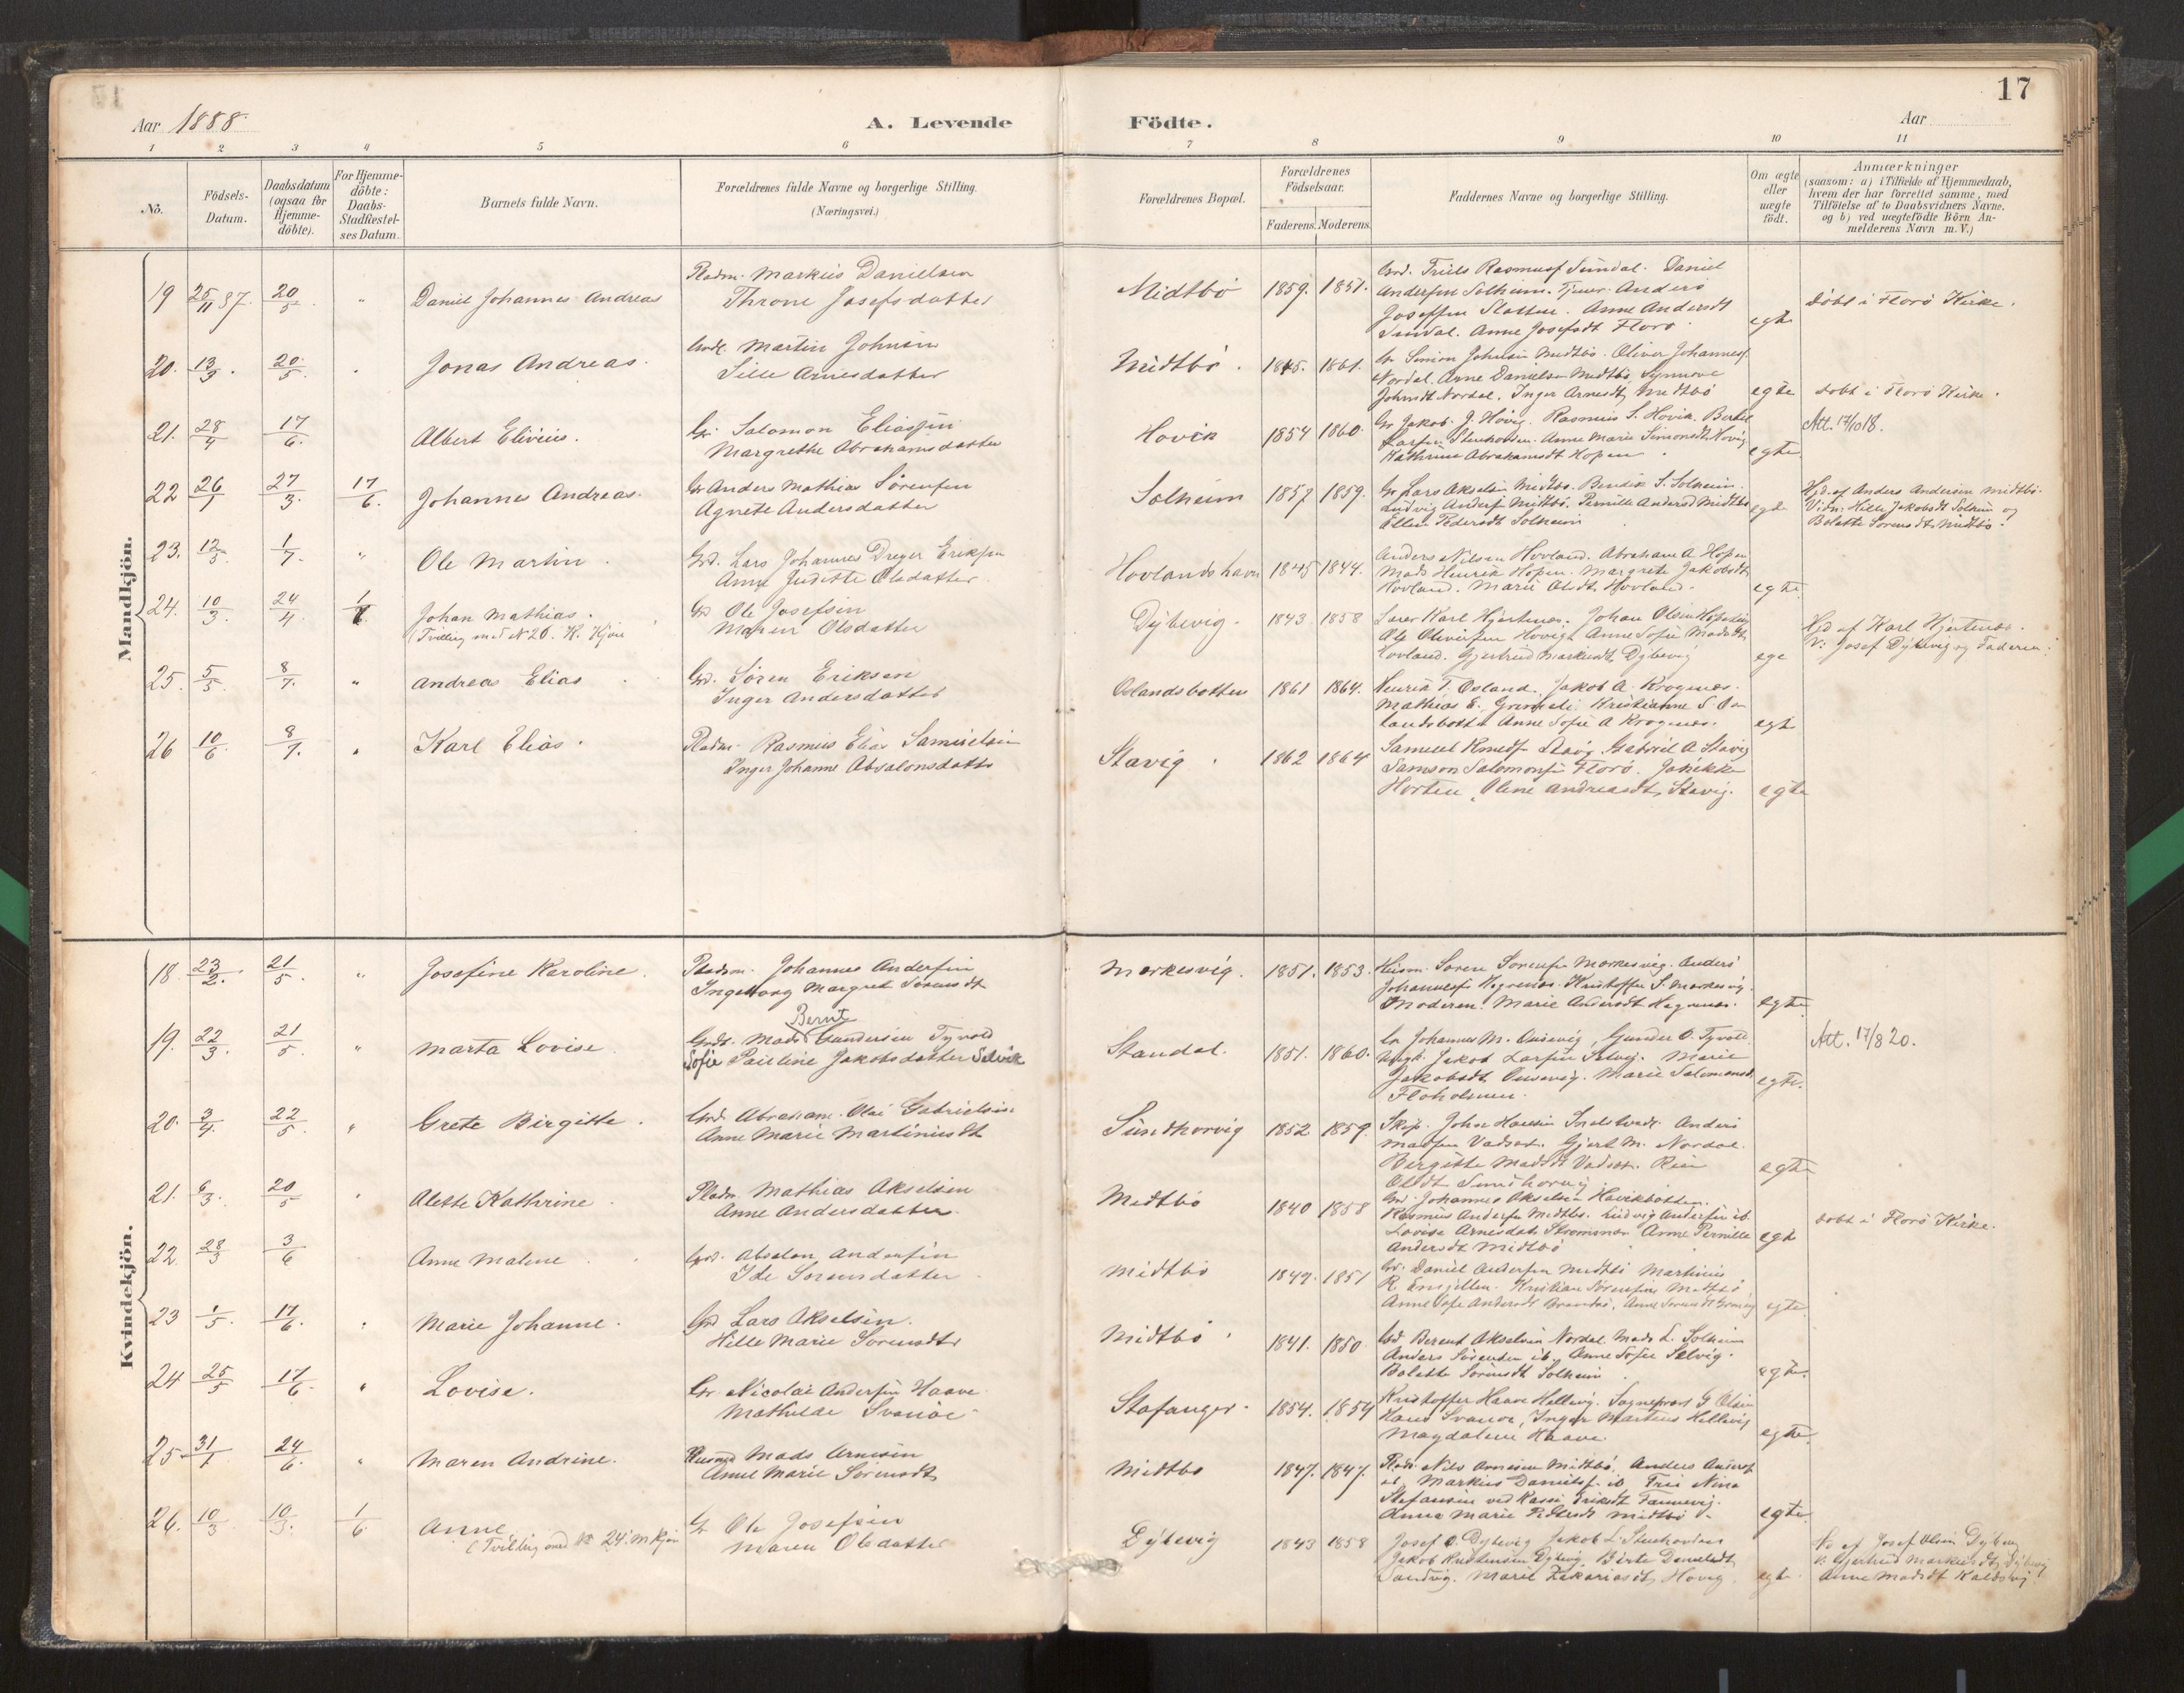 17
Aar 1888.
A. Levende
Födte.
Aar
1 2 3 4 5 6 7 8 9 10 11
No.
Födsels-
Datum.
Daabsdatum
(ogsaa for
Hjemme-
döbte).
For Hjemme-
döbte:
Daabs-
Stadfæstel-
ses Datum.
Barnets fulde Navn.
Forældrenes fulde Navne og borgerlige Stilling.
(Næringsvei.)
Forældrenes Bopæl.
Forældrenes
Födselsaar.
Faderens. Moderens.
Faddernes Navne og borgerlige Stilling.
Om ægte
eller
uægte
födt.
Anmærkninger
(saasom: a) i Tilfælde af Hjemmedaab,
hvem der har forrettet samme, med
Tilföielse af to Daabsvidners Navne,
og b) ved uægtefödte Börn An-
melderens Navn m. V.)
Mandkjön.
19 25/11 87. 20/5 " Daniel Johannes Andreas
Pladsm. Markus Danielsen
Throne Josefsdatter
Midtbö 1859. 1851.
Truls Rasmuss Sundal. Daniel
Andersen Solheim. Anders
Josefsen Anne Andersdt
Sundal. Anne Josefsdt Florö
egte
döbt i Florö Kirke.
20. 13/3. 20/5. Jonas Andreas.
Martin Johnsen
Sille Arnesdatter
Midtbö. 1845. 1861.
Simon Johnsen Midtbö. Oliver Johanness.
Nordal. Arne Danielsen Midtbö, Synnove
Johnsdt Nordal. Inger Arnesdt, Midtbö
egte
döbt i Florö Kirke.
21. 28/4 17/6. Albert Elivius.
Gr. Salomon Eliassen
Margrethe Abrahamsdatter
Hovik 1854 1860.
Gr Jakob J. Hovig. Rasmus S. Hovik. Bertel
Larsen Stenhovden. Anne Marie Simonsdt Hovig
Kathrine Abrahamsdt Hopen
egte.
Att. 17/10 18.
22 26/1 27/3. 17/6. Johannes Andreas.
Gr Anders Mathias Sörensen
Agnete Andersdatter
Solheim 1857 1859.
Gr Lars Akselsen Midtbö. Bendik S. Solheim.
Ludvig Anders. Midtbö. Pernille Andersd Midtbö
Ellen Pedersdt Solheim
egte
Hjd. af Anders Andersen Midtbö.
Vidn: Hille Jakobsdt Solheim og
Bolette Sorensdt Midtbö.
23. 12/5. 1/7. " Ole Martin.
Grd. Lars Johannes Dreyer Eriksen
Anne Juditte Olsdatter
Hovlandshavn 1845 1844.
Anders Nilsen Hovland. Abraham A Hopen
Mads Henrik Hopen. Margrete Jakobsdt
Hovland. Marie Olsdt Hovland.
egte.
24. 10/3. 24/4 1/7 Johan Mathias.
(Tvilling med N 26. K. Kjön
Gr Ole Josefsen
Maren Olsdatter
Dybevig. 1843 1858
Lærer Karl Hjertenes. Johan Olsen
Ole Oliversen Hovig Anne Sofie Madsdt
Hovland. Gjertrud Markusdt, Dybevig
Hjd af Karl Hjertenes.
V: Josef Dybevig og Faderen.
25. 5/5. 8/7. " Andreas Elias
Grd. Sören Eriksen
Inger Andersdatter
Oslandsbotten 1861 1864.
Henrik T. Osland. Jakob A. Krognæs.
Mathias E. Kristianne S. Os-
landsbotten Anne Sofie A Krognæs.
egte
26 10/6. 8/7. " Karl Elias.
Pladsm. Rasmus Elias Samuelsen
Inger Johanne Absalonsdatter
Stavig. 1862 1864
Samuel Stavig. Gabriel A Stavig
Samson Salomonsen Florö.
Horten. Oline Andreasdt, Stavig.
egte
Kvindekjön.
18. 23/2. 21/5. " Josefine Karoline.
Pladsm. Johannes Andersen
Ingeborg Margret Sörensdt
Markesvig. 1851. 1853.
Husm. Sören Sorensen Morkesvig. Anders
Johannesen Hegrenæs. Kristoffer S. Markesvig.
Moderen. Marie Andersdt Hegrenæs.
egte
19. 22/3. 21/5. " Marta Lovise
Bernt
Mads Gundersen Tyvold
Sofie Pauline Jakobsdatter Selvik
Standal. 1851. 1860.
Gr Johannes M. Gunder O. Tyvold.
Jakob Larsen Selvig. Marie
Jakobsdt Marie Salomonsd.
Floholmen.
egte.
Att. 17/8 20.
20. 3/4. 22/5. " Grete Birgitte.
Grd. Abraham Olai Gabrielsen
Anne Marie Martinusdt
Sundhorvig 1852 1859.
Skip. Johan Hansen Anders
Madsen Vadset. Gjert M. Nordal.
Birgitte Madsdt Vadset.
Olsdt Sundhorvig
egte
21. 6/3. 20/5 Alette Kathrine
Pladsm. Mathias Akselsen
Anne Andersdatter.
Midtbö 1840 1858
Gr. Johannes Akselsen Havikbotten.
Rasmus Andersen Midtbö. Ludvig Andersen ib.
Lovise Arnesdatt Anne Pernille
Andersdt Midtbö
egte
döbt i Florö Kirke.
22 28/3 3/6 Anne Malene
Absalon Andersen
Ide Sorensdatter
Midtbö 1847. 1851
Gr. Daniel Andersen Midtbö Martinus
R. Kristian Sörensen Midtbö
Anne Sofie Andersdt
egte.
23 1/5. 17/6. Marie Johanne.
Grd Lars Akselsen.
Hille Marie Sorensdtr
Midtbö 1841. 1850
Grd Berent Akselsen Nordal. Mads L. Solheim
Anders Sörensen ib. Anne Sofie Selvig.
Bolette Sörensdt Solheim
egte.
24 25/5 17/6. " Lovise.
Gr. Nicolai Andersen Haave
Mathilde Svanöe
Stafanger. 1854. 1859
Kristoffer Haave Hellevig. G Olsen
Hans Svanöe, Inger Martens Hellevig
Magdalene Haave.
egte.
25 31/1 24/6. " Maren Andrine.
Mads Arnesen
Anne Marie Sörensdt,
Midtbö 1847. 1847.
Nils Arnesen Midtbö. Anders
Markus Daniels. ib Nina
Anna Marie Midtbö
egte.
26. 10/3 10/3. 1/6 Anne
(Tvilling med No 24. M kjön
Gr Ole Josefsen
Maren Olsdatter
Dybevig 1843 1858
Josef O. Dybevig Jakob L. Stenhovden
Jakob Dybevig, Birte Danielsdt
Sandvig. Marie Zakariasdt, Hovig.
egte
af Josef Olsen Dybevig
V: Gjertrud Markusdt, Dybevig
Anne Madsdt